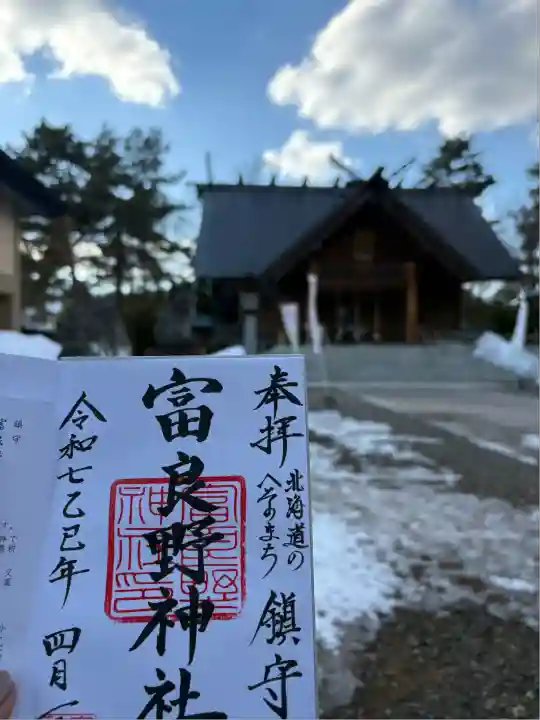 奉拝
北海道の
へそのまち
鎮守
富良野神社
令和七乙巳年
四月
鎮守